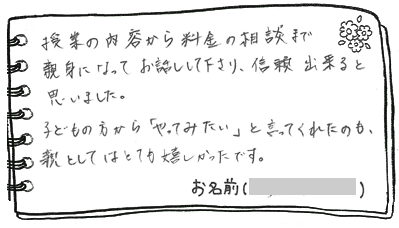 授業の内容から料金の相談まで
親身になってお話しして下さり、信頼出来ると
思いました。
子どもの方から「やってみたい」と言ってくれたのも、
親としてはとても嬉しかったです。
お名前( )